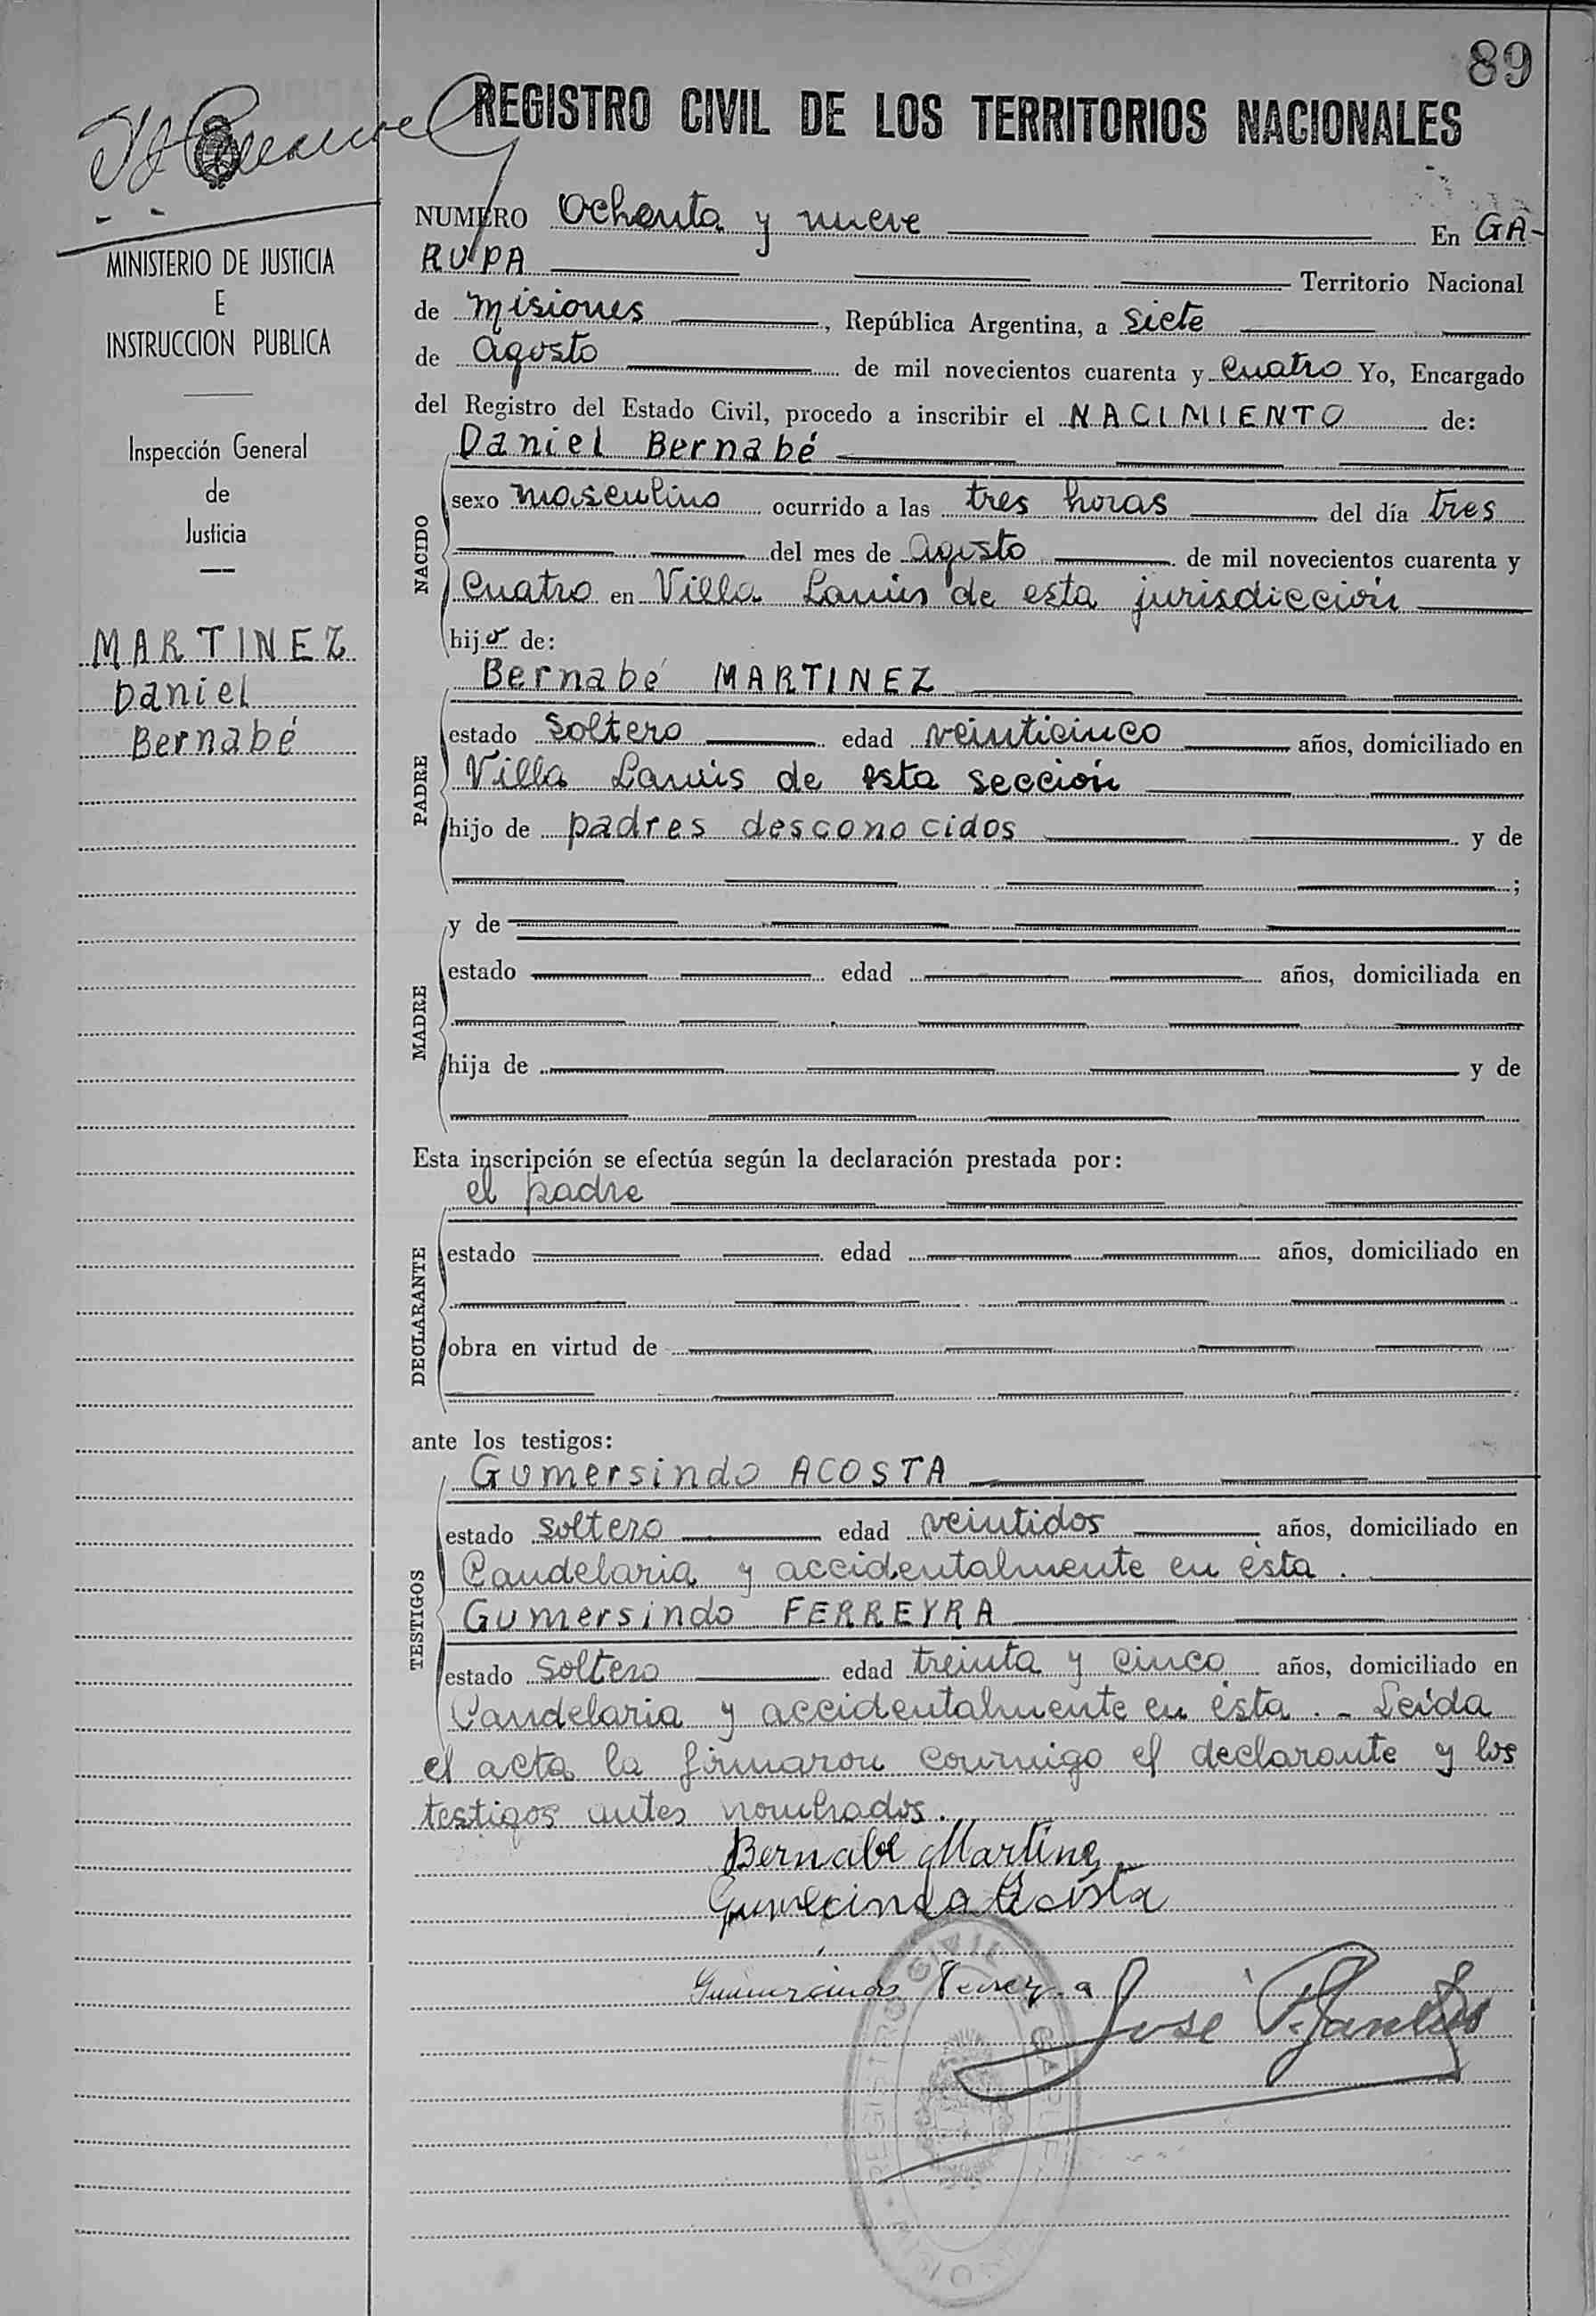 89
REGISTRO CIVIL DE LOS TERRITORIOS NACIONALES
MINISTERIO DE JUSTICIA
E
INSTRUCCION PUBLICA
Inspección General
de
Justicia
MARTINEZ
Daniel
Bernabé
NUMERO Ochenta y nueve En GA-
RUPA Territorio Nacional
de Misiones, República Argentina, a siete
de Agosto de mil novecientos cuarenta y cuatro Yo, Encargado
del Registro del Estado Civil, procedo a inscribir el NACIMIENTO de:
Daniel Bernabé
NACIDO
sexo masculino ocurrido a las tres horas del día tres
del mes de Agosto de mil novecientos cuarenta y
cuatro en Villa Lanús de esta jurisdicción
hijo de:
Bernabé MARTINEZ
PADRE
estado soltero edad veinticinco años, domiciliado en
Villa Lanús de esta sección
hijo de padres desconocidos y de
;
MADRE
y de
estado edad años, domiciliada en
hija de y de
Esta inscripción se efectúa según la declaración prestada por:
el padre
DECLARANTE
estado edad años, domiciliado en
obra en virtud de
ante los testigos:
TESTIGOS
Gumersindo ACOSTA
estado soltero edad veintidos años, domiciliado en
Candelaria y accidentalmente en ésta.
Gumersindo FERREYRA
estado soltero edad treinta y cinco años, domiciliado en
Candelaria y accidentalmente en ésta. - Leída
el acta la firmaron conmigo el declarante y los
testigos antes nombrados.
Bernabe Martinez
Gumecindo Acosta
José
REGISTRO CIVIL